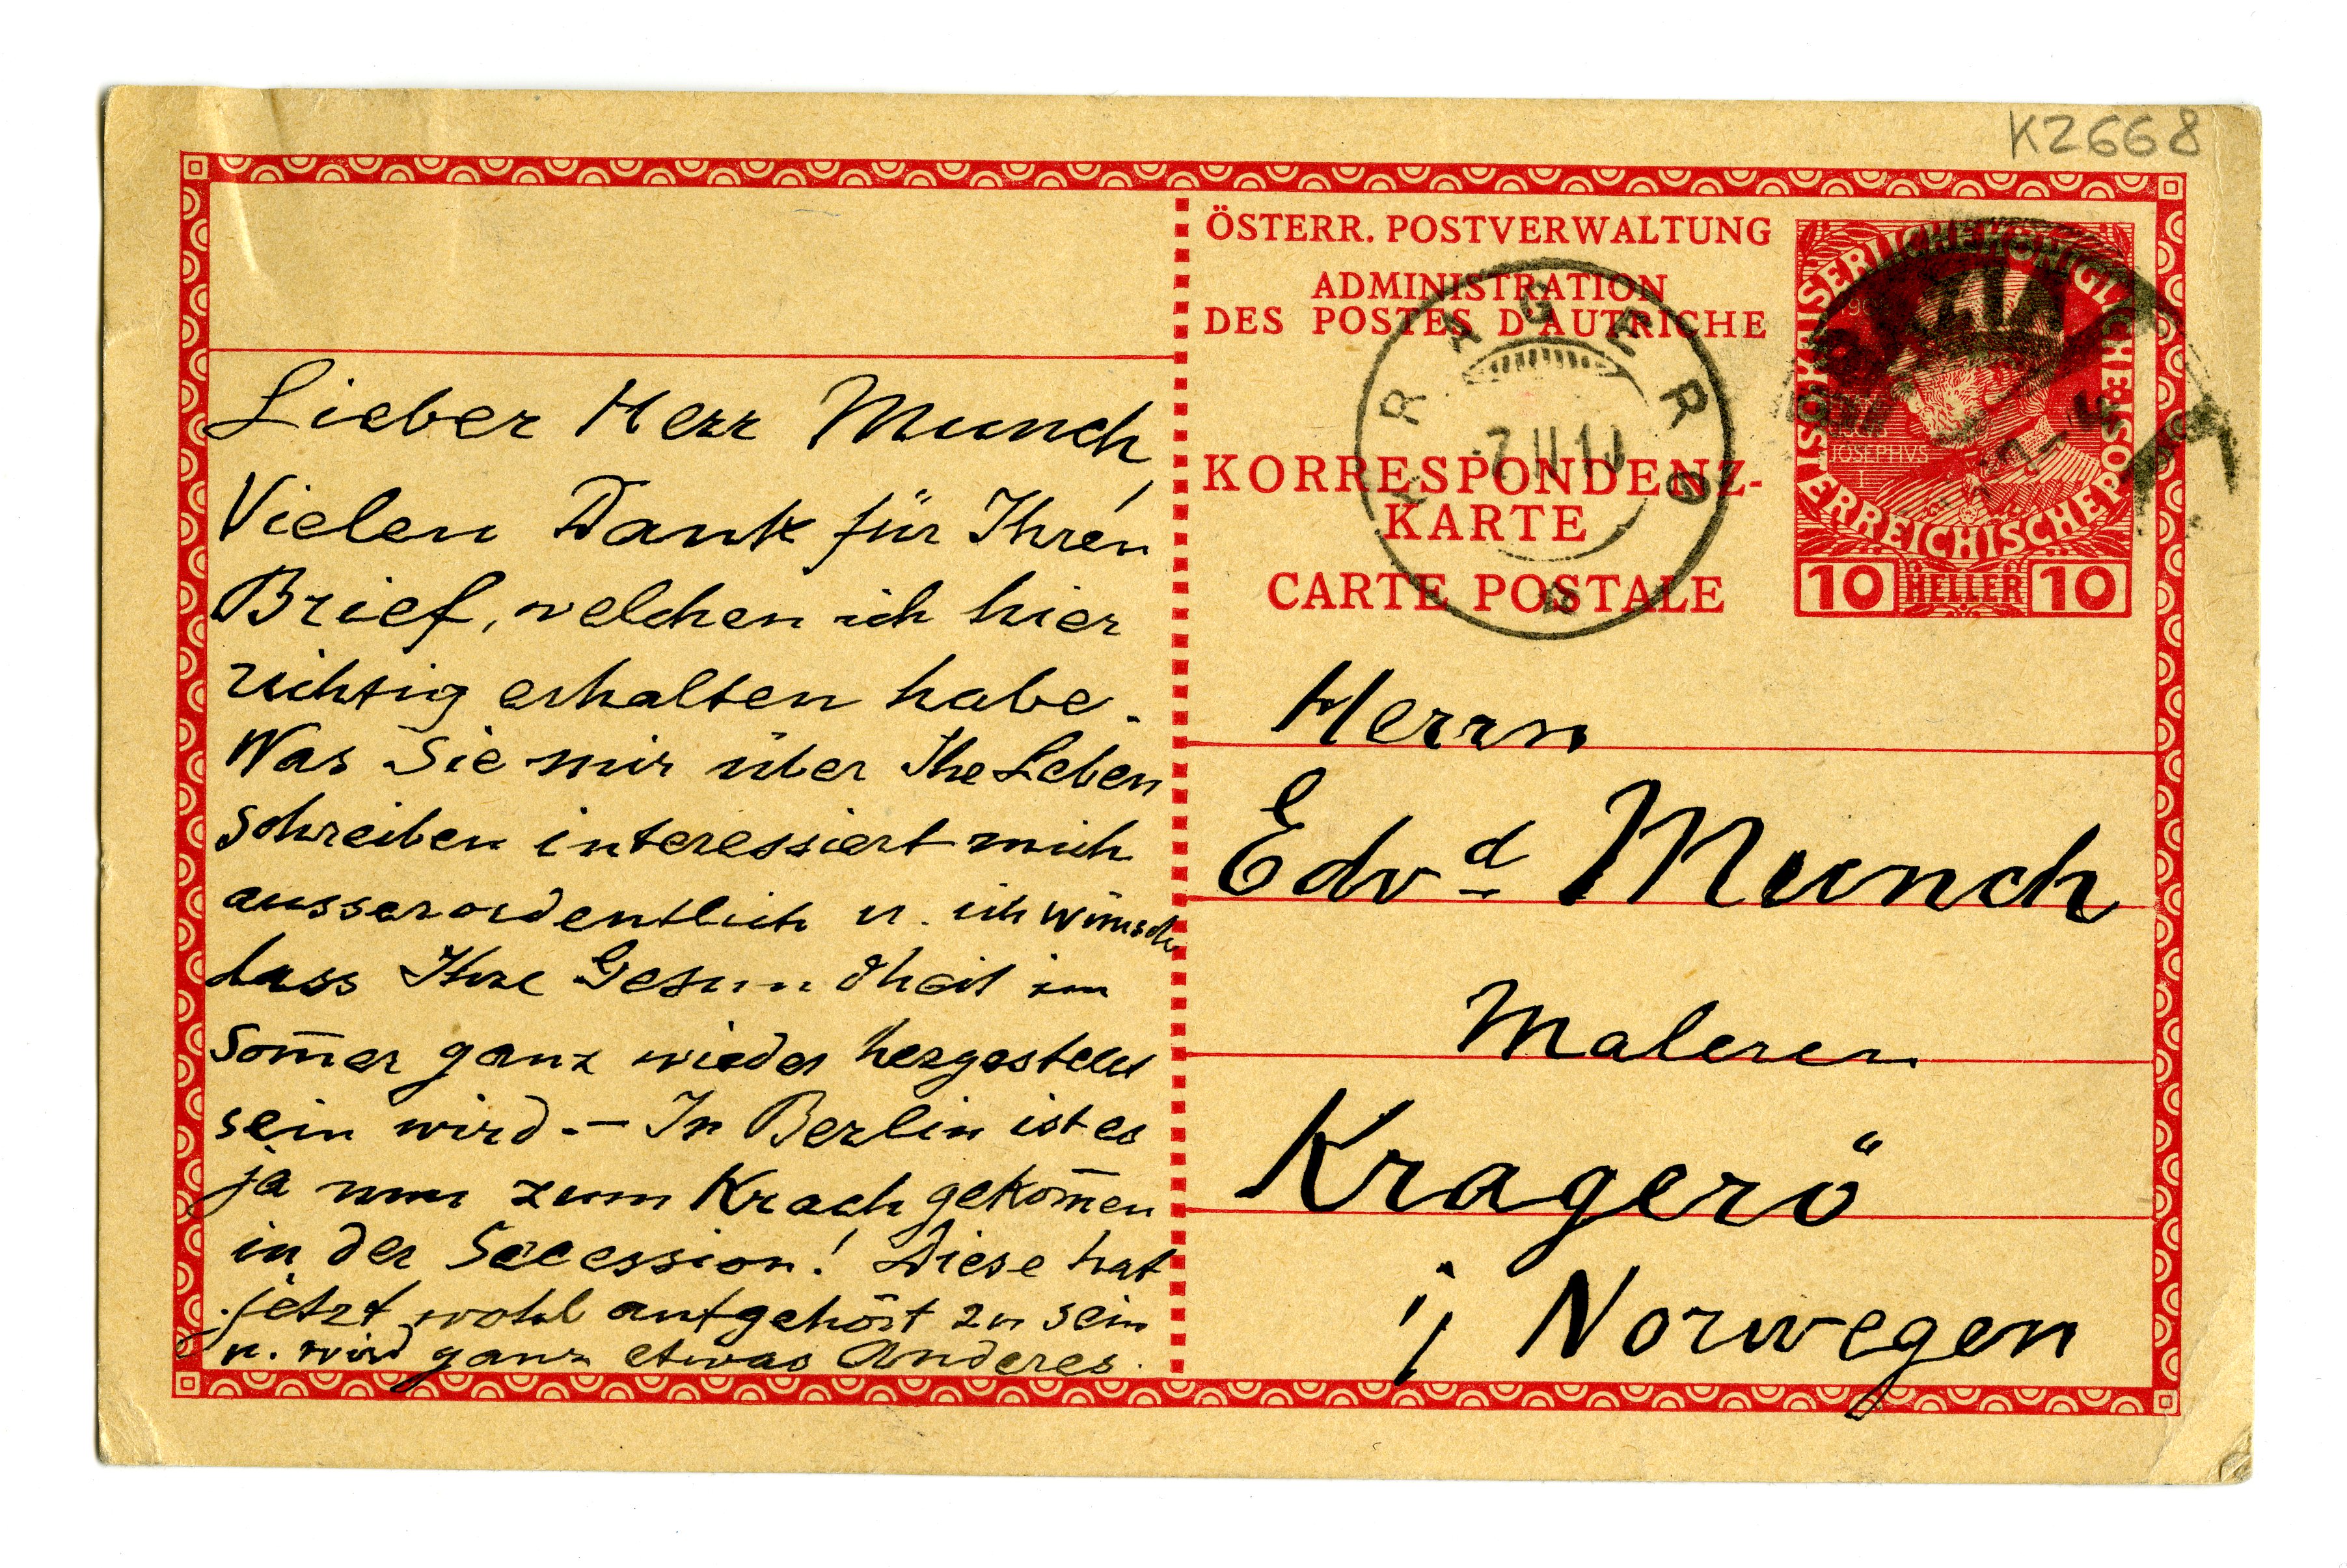 K2668
Lieber Herr Munch,
Vielen Dank für Ihren
Brief, welchen ich hier
richtig erhalten habe.
Was Sie mir über Ihe Leben
schreiben interessiert mich
ausserordentlich u. ich wünsche
dass Ihre Gesundheit im
Som̅er ganz wieder hergestellt
sein wird. — In Berlin ist es
ja nun zum Krach gekom̅en
in der Secession! Diese hat
jetzt wohl aufgehört zu sein
u. wird ganz etwas Anderes.
ÖSTERR. POSTVERWALTUNG
ADMINISTRATION
DES POSTES D'AUTRICHE
KORRESPONDENZ-
KARTE
CARTE POSTALE
KRAGERØ
7 II 10
KAISERLICHE KÖNIGLICHE ÖSTERREICHISCHE POST
JOSEPHVS
I
10 HELLER 10
Herrn
Edvd Munch
Maleren
Kragerö
i/ Norwegen